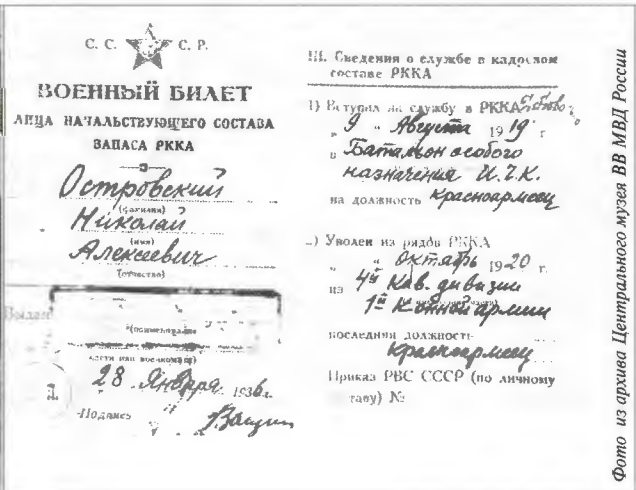 С. С. С. Р.
ВОЕННЫЙ БИЛЕТ
ЛИЦА НАЧАЛЬСТВУЮЩЕГО СОСТАВА
ЗАПАСА РККА
Островский
(фамилия)
Николай
(имя)
Алексеевич
(отчество)
Выдан
(наименование
части или военкомата)
28 Января 1936г.
Подпись
III. Сведения о службе в кадровом
составе РККА
1) Вступил на службу в РККА
„ 9 „ Августа 1919 г
в Батальон особого
назначения И.Ч.К.
на должность красноармеец
2) Уволен из рядов РККА
„ „ октябрь 1920 г.
из 4й Кав. дивизии
1й Конной армии
последняя должность
красноармеец
Приказ РВС СССР (по личному
ставу) №
Фото из архива Центрального музея ВВ МВД России